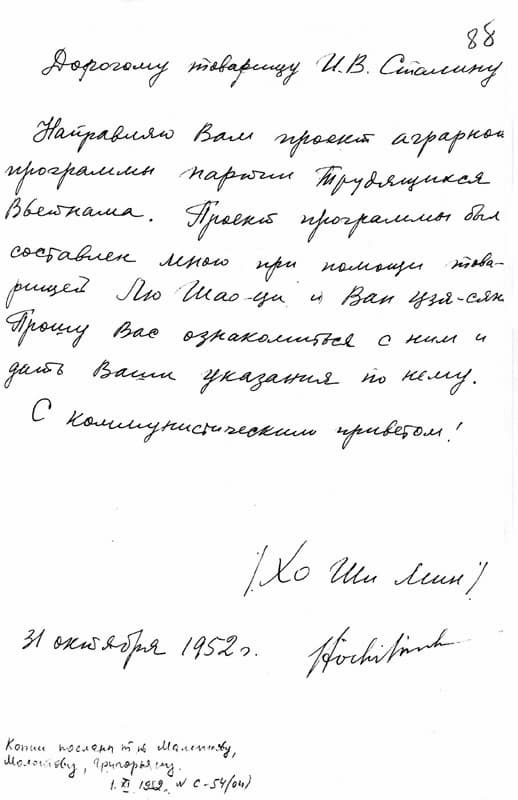 88
Дорогому товарищу И.В. Сталину
Направляю Вам проект аграрной
программы партии Трудящихся
Вьетнама. Проект программы был
составлен мною при помощи това-
рищей Лю Шао-ци и Ван Цзя-сян
Прошу Вас ознакомиться с ним и
дать Ваши указания по нему.
С коммунистическим приветом!
/Хо Ши Мин/
31 октября 1952 г.
Hochiminh
Копии посланы т.т. Маленкову,
Молотову, Григорьяну.
1. XI 1952. N С-54(04)